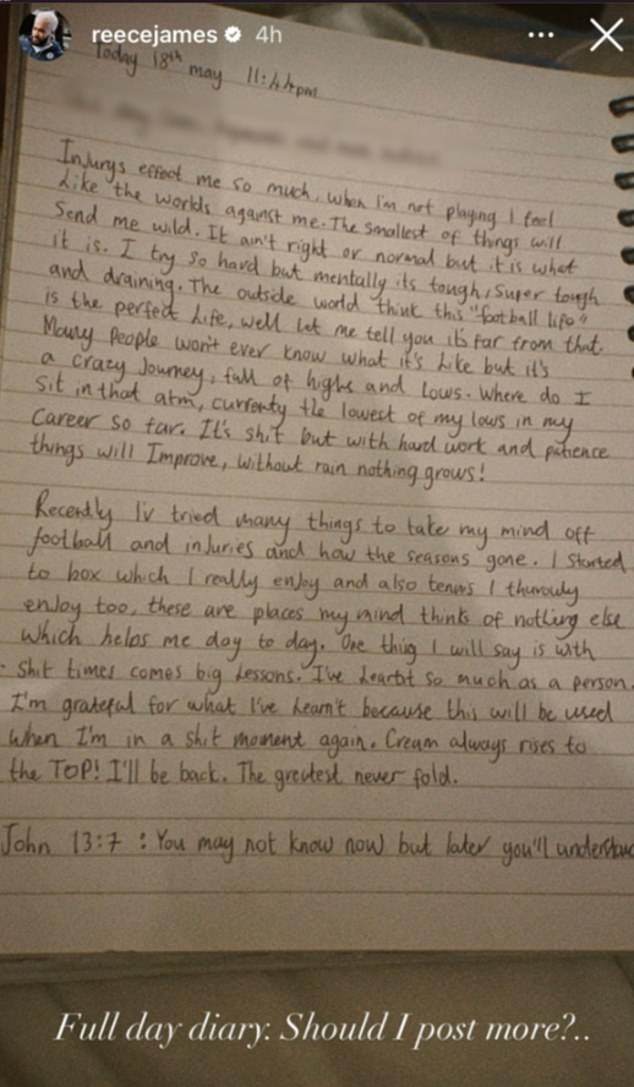 reecejames 4h
Today 18th may 11:44pm
Injurys effect me so much, when I'm not playing I feel
like the worlds against me. The smallest of things will
Send me wild. It ain't right or normal but it is what
it is. I try so hard but mentally its tough, Super tough
and draining. The outside world think this "football life"
is the perfect life, well let me tell you it's far from that.
Many people won't ever know what it's like but it's
a crazy Journey, full of highs and lows. Where do I
Sit in that atm, currenty the lowest of my lows in my
Career so far. It's shit but with hard work and patience
things will Improve, without rain nothing grows!
Recently Iv tried many things to take my mind off
football and injuries and how the seasons gone. I started
to box which I really enjoy and also tennis I thurouly
enjoy too, these are places my mind thinks of nothing else
Which helps me day to day. One thing I will say is with
Shit times comes big lessons. I've learnt so much as a person.
I'm grateful for what I've learn't because this will be used
When I'm in a shit moment again. Cream always rises to
the TOP! I'll be back. The greatest never fold.
John 13:7 : You may not know now but later you'll understand
Full day diary. Should I post more?..